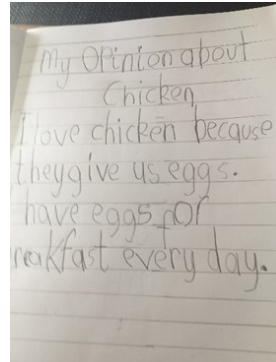 My Opinion about
Chicken
I love chicken because
they give us eggs.
have eggs for
reakfast every day.